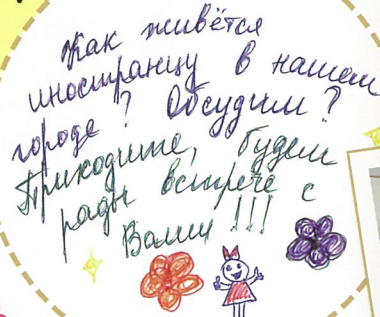 Как живётся
иностранцу в нашем
городе? Обсудим?
Приходите, будем
рады встрече с
Вами!!!